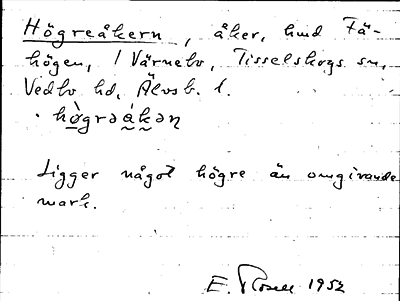 Högreåkern, åker, hmd Fä-
högen, 1 Värnebo, Tisselskogs sn,
Vedbo hd, Älvsb. l.
Ligger något högre än omgivande
mark.
E. Rosell 1952